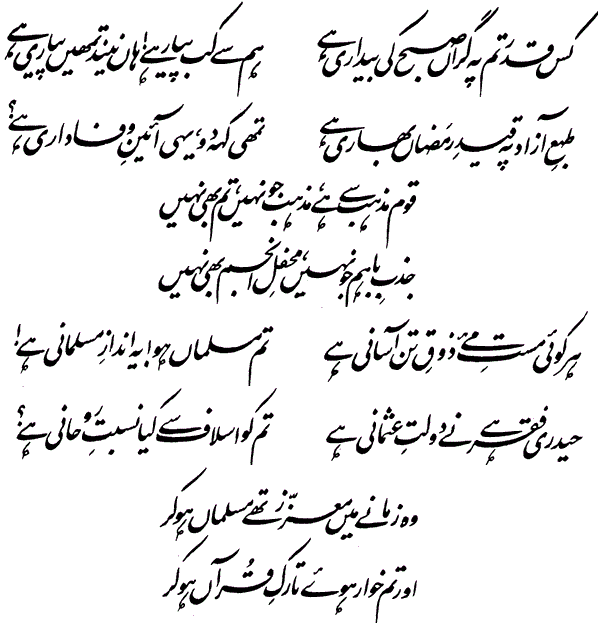 کس قدر تم پہ گراں صبح کی بیداری ہے ہم سے کب پیار ہے! ہاں نیند تمھیں پیاری ہے
طبعِ آزاد پہ قیدِ رمَضاں بھاری ہے تمھی کہہ دو، یہی آئینِ وفاداری ہے؟
قوم مذہب سے ہے، مذہب جو نہیں، تم بھی نہیں
جذبِ باہم جو نہیں، محفلِ انجم بھی نہیں
ہر کوئی مستِ مئے ذوقِ تن آسانی ہے تم مسلماں ہو! یہ اندازِ مسلمانی ہے!
حیدری فقر ہے نے دولتِ عثمانی ہے تم کو اسلاف سے کیا نسبتِ روحانی ہے؟
وہ زمانے میں معزّز تھے مسلماں ہو کر
اور تم خوار ہوئے تارکِ قُرآں ہو کر